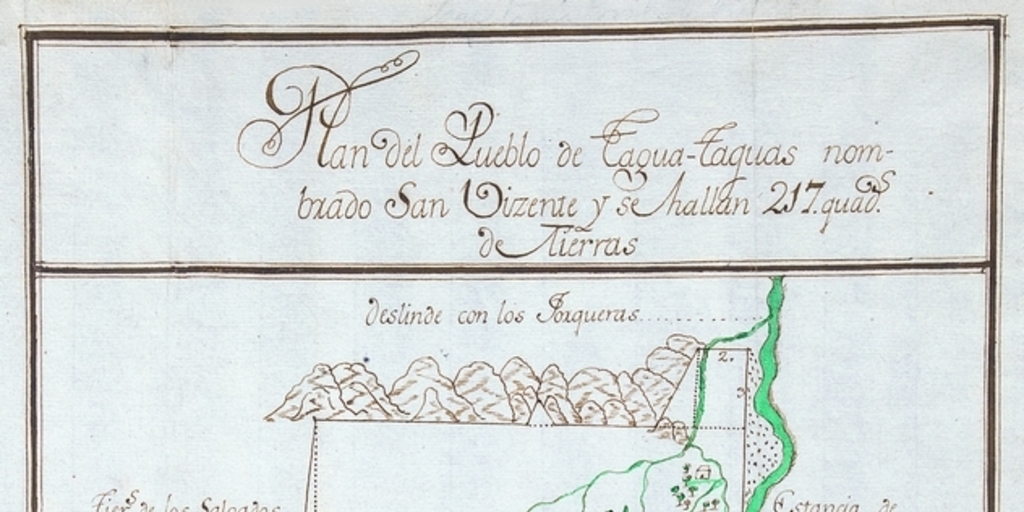 Plan del Pueblo de Tagua-Taguas nom-
brado San Vizente y se hallan 217. quads.
de Tierras
deslinde con los Jorqueras
2.
Tiers. de los Salgados
Estancia de